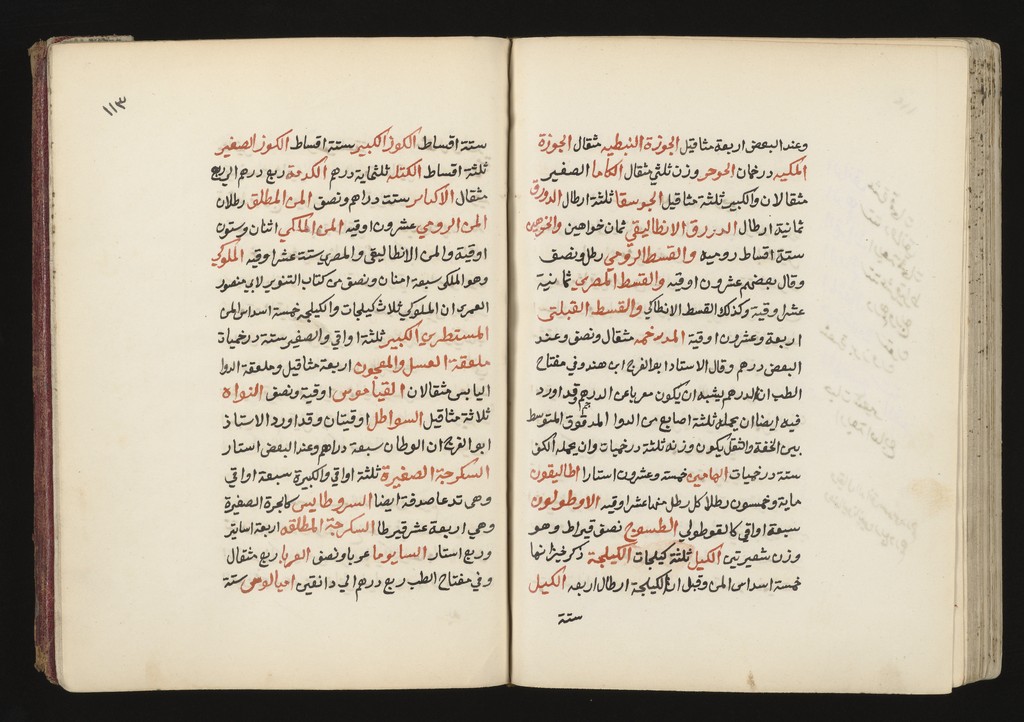 وعند البعض اربعة مثاقيل الجوزة النبطيه مثقال الجوزة
الملكيه درخمان الجوحر وزن ثلثي مثقال الكاما الصغير
مثقالان والكبير ثلثة مثاقيل الجوسقا ثلثة ارطال الدورق
ثمانية ارطال الدورق الانطاليقي ثمان خواهين والخوجين
ستة اقساط روميه والقسط الرومي رطل ونصف
وقال بعضهم عشرون اوقيه والقسط المصري ثمانية
عشر اوقية وكذلك القسط الانطاكي والقسط القبلتي
اربعة وعشرون اوقية المدرخمه مثقال ونصف وعند
البعض درهم وقال الاستاد ابو الفرج ابن هندو في مفتاح
الطب ان الدرهم يشبه ان يكون معربا عن الدرهم وقد اورد
فيه ايضا ان يحمله ثلثة اصابع من الدوا المدقوق المتوسط
بين الخفة والثقل يكون وزنه ثلثة درخميات وان يحمله الكف
ستة درخميات الهامين خمسة وعشرون استارا اطاليقون
ماية وخمسون رطلا كل رطل منها عشر اوقيه الاوطولون
سبعة اواقي كالقوطولي الطسوج نصف قيراط وهو
وزن شعيرتين الكيل ثلثة كيلجات الكيلجة ذكر غيرانها
خمسة اسداس المن وقيل ان الكيلجة ارطال اربعه الكيل
ستة
١١٣
ستة اقساط الكوز الكبير ستة اقساط الكوز الصغير
ثلثة اقساط الكتله ثلثماية درهم الكرمة ربع درهم الربع
مثقال الاكباس ستة دراهم ونصف المن المطلق رطلان
المن الرومي عشرون اوقيه المن الملكي اثنان وستون
اوقية والمن الانطاليقي والمصري ستة عشر اوقيه الملوكي
وهو الملكي سبعة امنان ونصف من كتاب التنوير لابي منصور
العمري ان الملوكي ثلاث كيلجات والكيلجه خمسة اسداس المن
المستطرين الكبير ثلثة اواقي والصغير ستة درخميات
ملعقة العسل والمعجون اربعة مثاقيل وملعقة الدوا
اليابس مثقالان القياموس اوقية ونصف النواه
ثلاثة مثاقيل السواطل اوقيتان وقد اورد الاستاذ
ابو الفرج ان الوطان سبعة دراهم وعند البعض استار
السكرجة الصغيرة ثلثة اواقي والكبيرة سبعة اواقي
وهي تدعا صدفة ايضا السروطايس كالجرة الصغيرة
وهي اربعة عشر قيرطا السكرجة المطلقه اربعة اساتير
وربع استار السايوما عربا ونصف العربا ربع مثقال
وفي مفتاح الطب ربع درهم الى دانقين امبالوس ستة